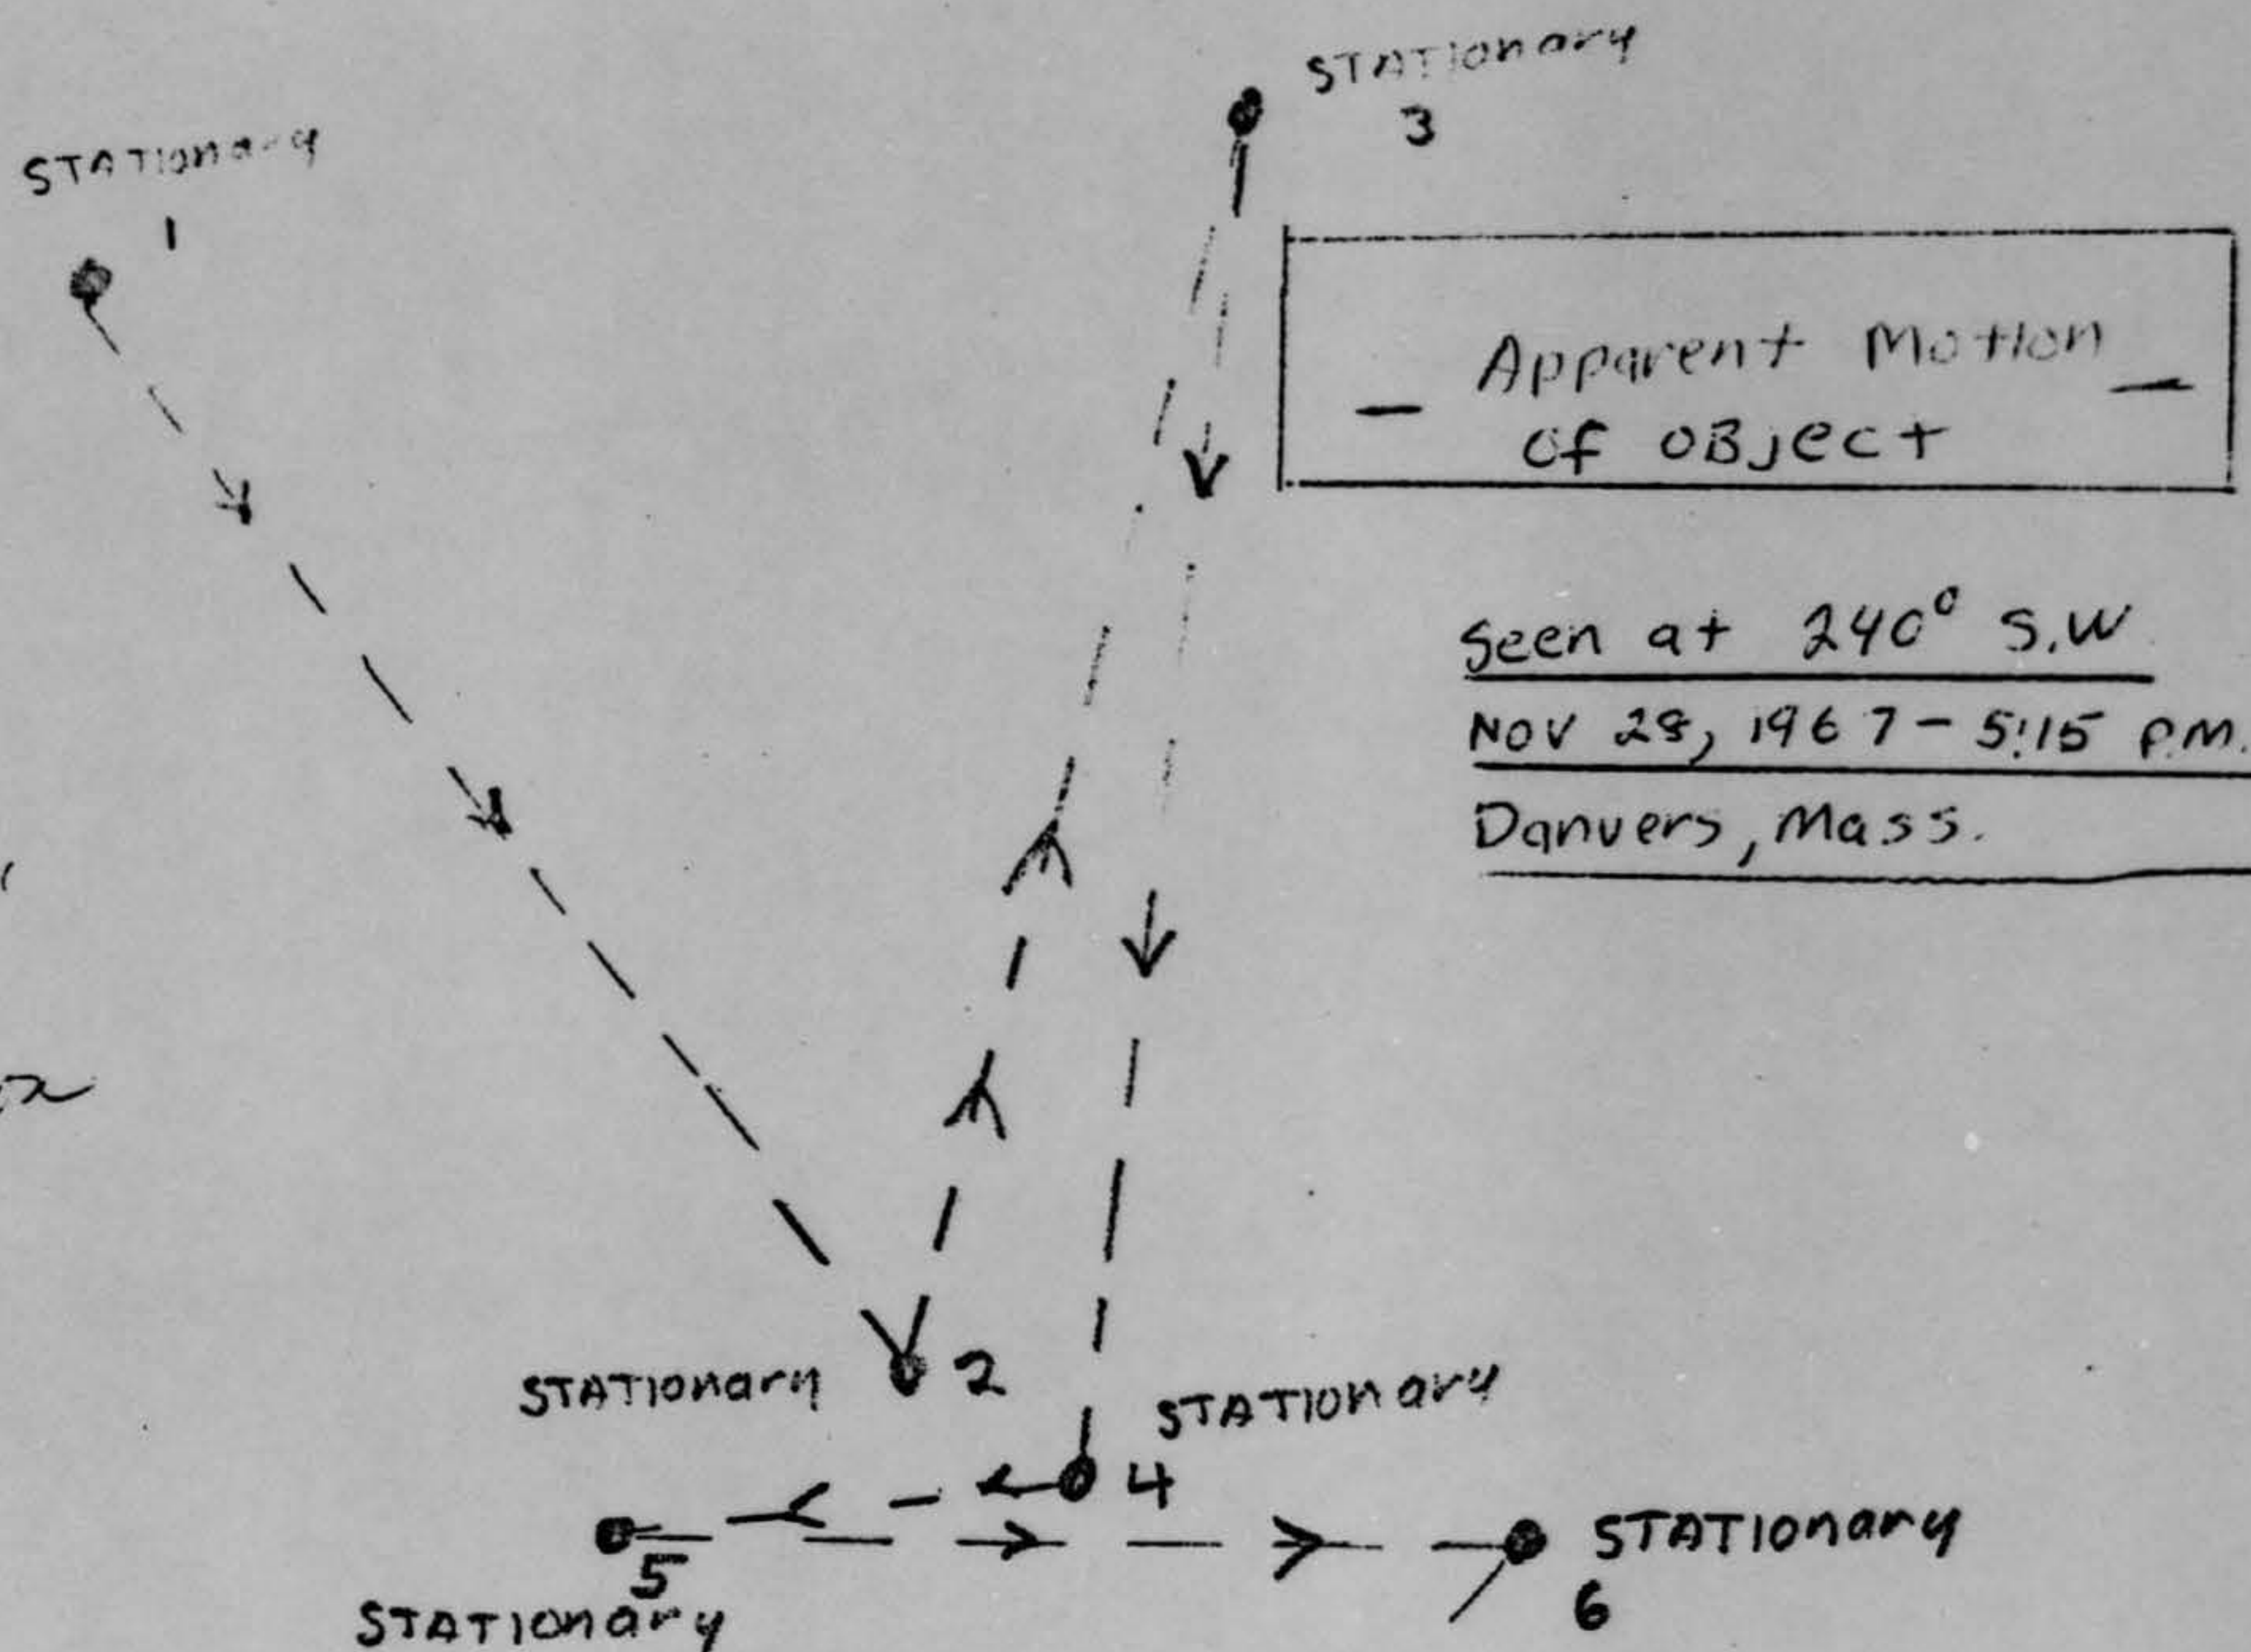 STATIONary
3
STATIONary
1
— Apparent Motion —
of OBJect
Seen at 240° S.W
NOV 28, 1967 - 5:15 P.M.
Danvers, Mass.
STATIONary 2
STATIONary
4
STATIONary
6
5
STATIONary